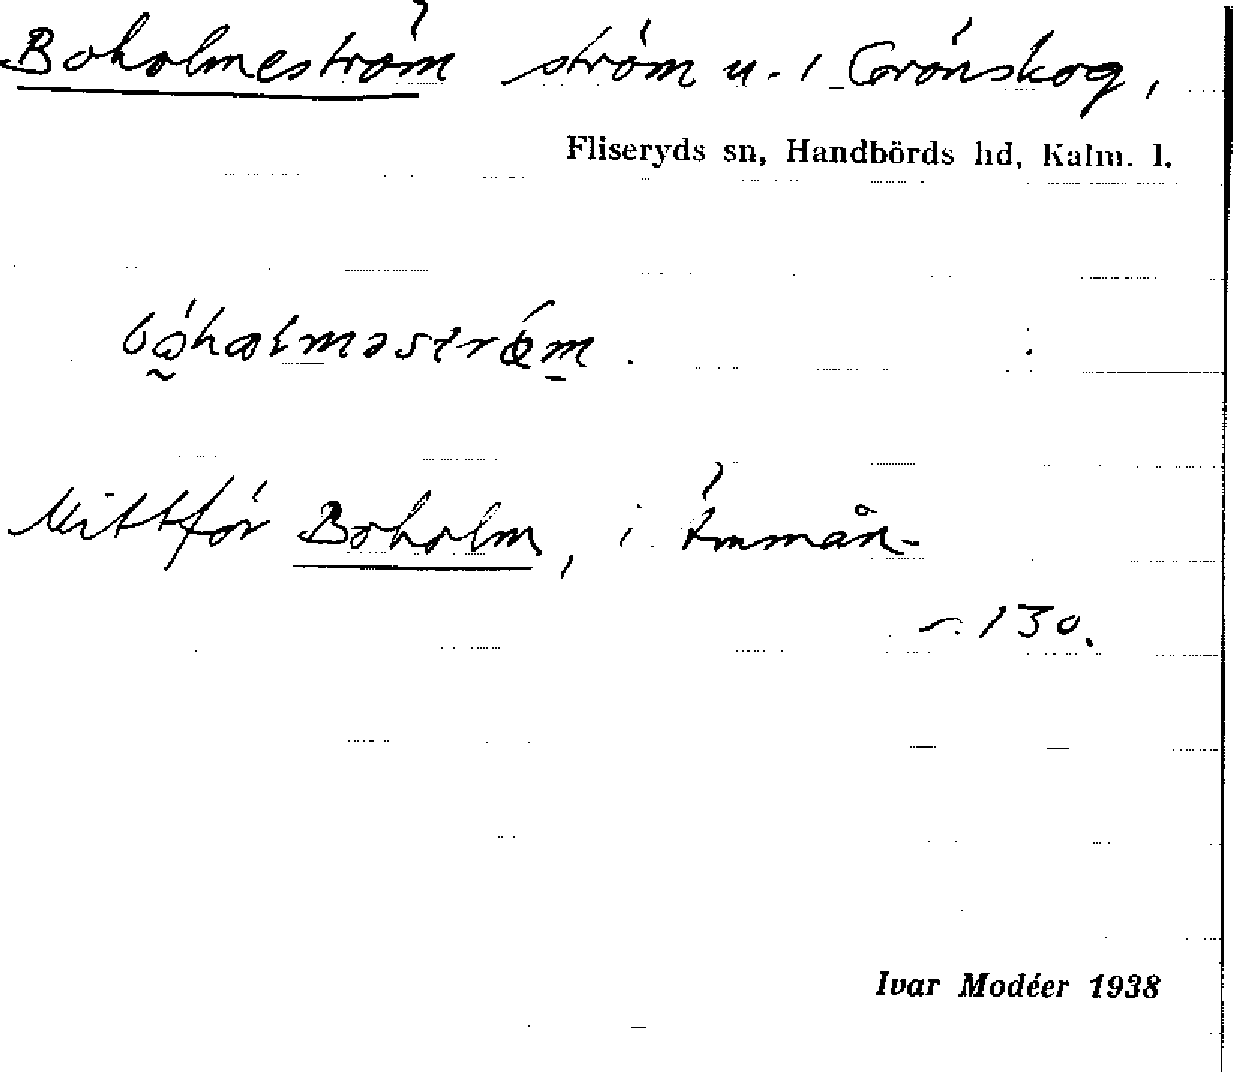 Boholmeström ström u. i Grönskog,
Fliseryds sn, Handbörds hd, Kalm. l.
Mittför Boholm, i Emmån.
130.
Ivar Modéer 1938